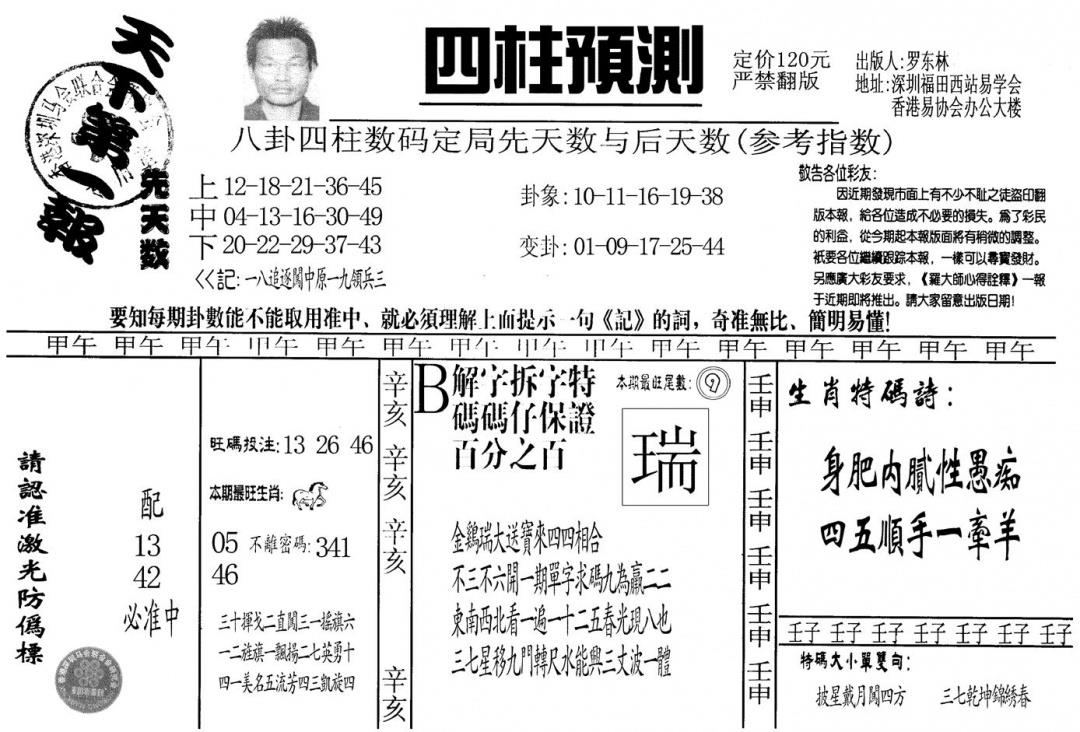 天下第一報
四柱預測
定价120元
严禁翻版
出版人:罗东林
地址:深圳福田西站易学会
香港易协会办公大楼
八卦四柱数码定局先天数与后天数(参考指数)
先天数
上 12-18-21-36-45
中 04-13-16-30-49
下 20-22-29-37-43
卦象:10-11-16-19-38
变卦:01-09-17-25-44
<<記:一八追逐闖中原一九領兵三
敬告各位彩友:
因近期發現市面上有不少不耻之徒盜印翻
版本報,給各位造成不必要的損失。爲了彩民
的利益,從今期起本報版面將有稍微的調整。
衹要各位繼續跟踪本報,一樣可以尋寶發財。
另應廣大彩友要求,《羅大師心得詮釋》一報
于近期即將推出。請大家留意出版日期!
要知每期卦數能不能取用准中、就必須理解上面提示一句《記》的詞,奇准無比、簡明易懂!
甲午 甲午 甲午 甲午 甲午 甲午 甲午 甲午 甲午 甲午 甲午 甲午 甲午 甲午 甲午
請認准激光防僞標
配
13
42
必准中
旺碼投注:13 26 46
本期最旺生肖:
05 不離密碼:341
46
三十揮戈二直闖三一摇旗六
一二旌旗一飄揚二七英勇十
四一美名五流芳四三凱旋四
辛亥
辛亥
辛亥
辛亥
B 解字拆字特
碼碼仔保證
百分之百
本期最旺尾數:9
瑞
金鷄瑞大送寶來四四相合
不三不六開一期單字求碼九為贏二二
東南西北看一遍一十二五春光現八也
三七星移九門轉尺水能興三丈波一體
壬申
壬申
壬申
壬申
壬申
壬申
生肖特碼詩:
身肥内膩性愚痴
四五順手一牽羊
壬子 壬子 壬子 壬子 壬子 壬子 壬子
特碼大小單雙句:
披星戴月闖四方 三七乾坤錦綉春